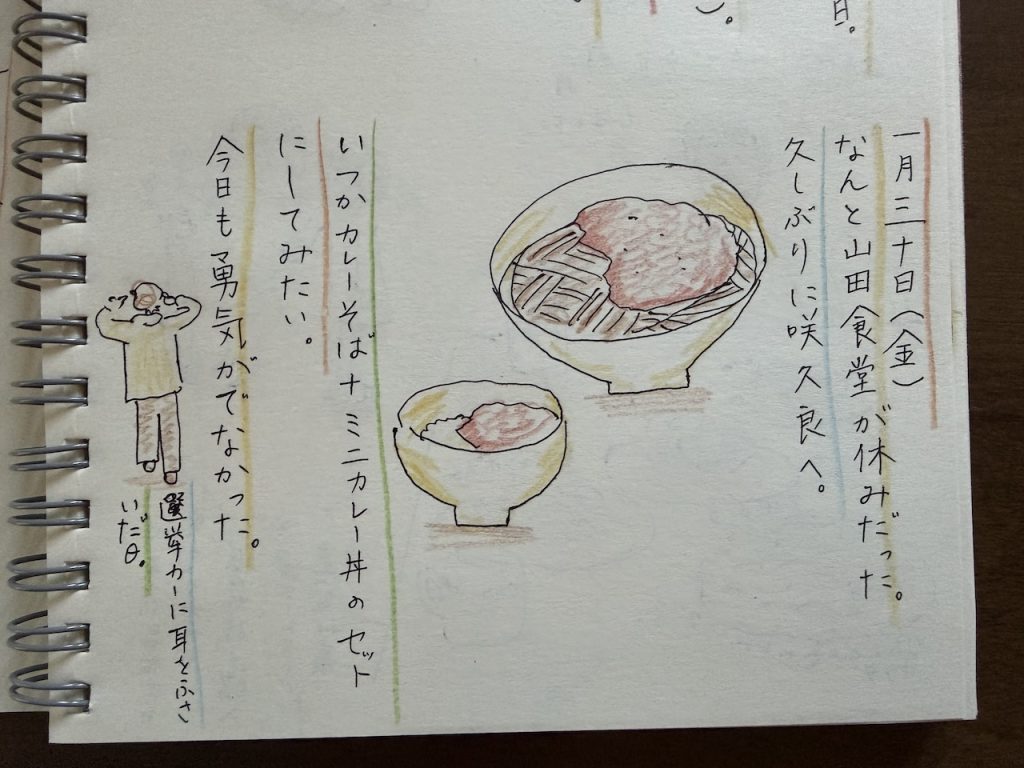 日。
)。
。
一月三十日(金)
なんと山田食堂が休みだった。
久しぶりに咲久良へ。
いつかカレーそば+ミニカレー丼のセット
にしてみたい。
今日も勇気がでなかった。
選挙カーに耳をふさ
いだ日。